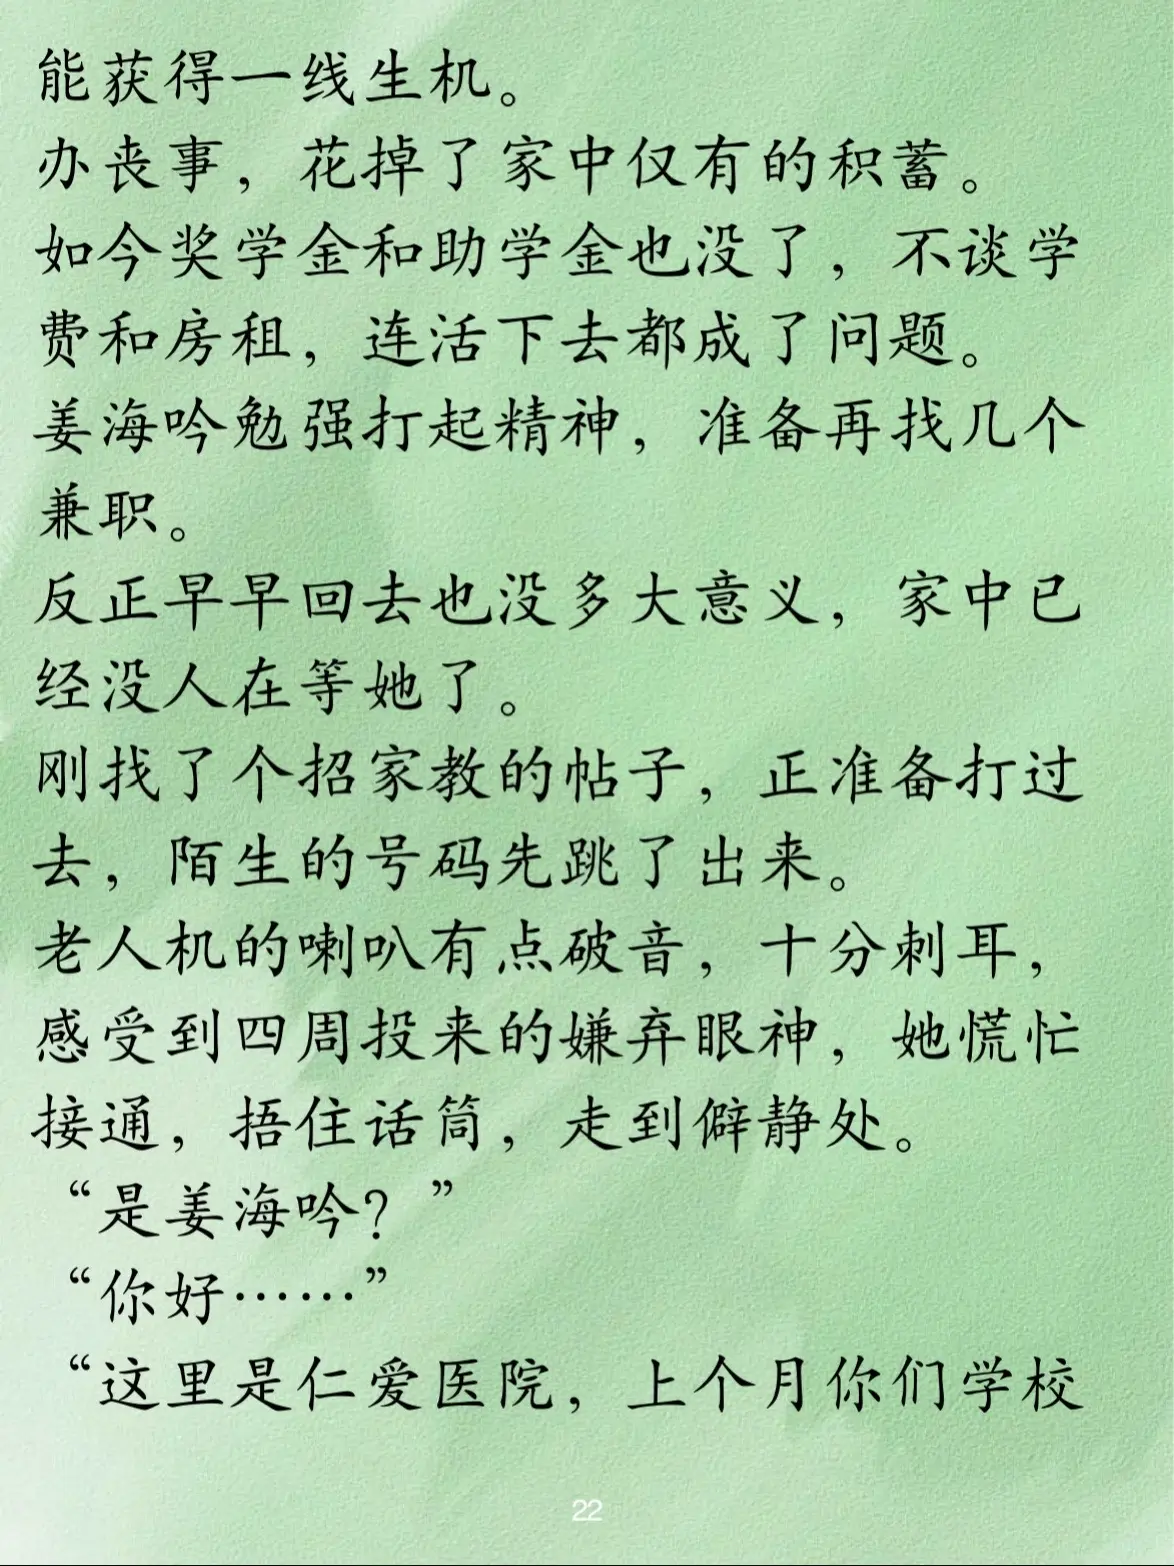 能获得一线生机。
办丧事，花掉了家中仅有的积蓄。
如今奖学金和助学金也没了，不谈学
费和房租，连活下去都成了问题。
姜海吟勉强打起精神，准备再找几个
兼职。
反正早早回去也没多大意义，家中已
经没人在等她了。
刚找了个招家教的帖子，正准备打过
去，陌生的号码先跳了出来。
老人机的喇叭有点破音，十分刺耳，
感受到四周投来的嫌弃眼神，她慌忙
接通，捂住话筒，走到僻静处。
“是姜海吟？”
“你好……”
“这里是仁爱医院，上个月你们学校
22